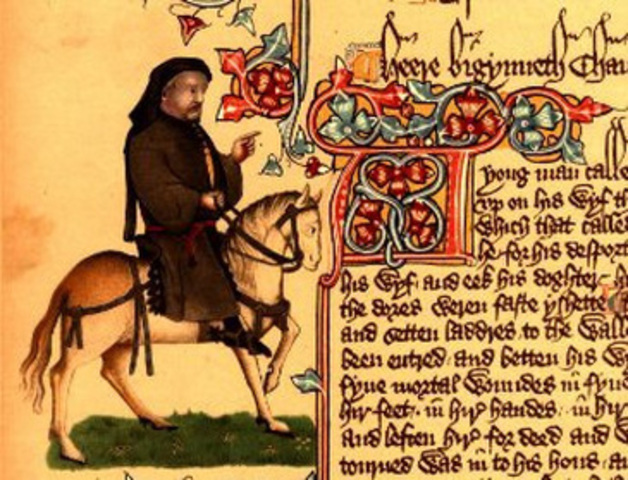 Heere bigynneth Chau
A yong man calle
vp on his wyf th
which that called
he for his desport
his wyf and eek his doghter
the dores weren faste yshette
and setten laddres to the walle
been entred and betten his wy
fyue mortal woundes in fyue
hir feet in hir handes in hir
and leften hir for deed and w
tourned was in to his hous a